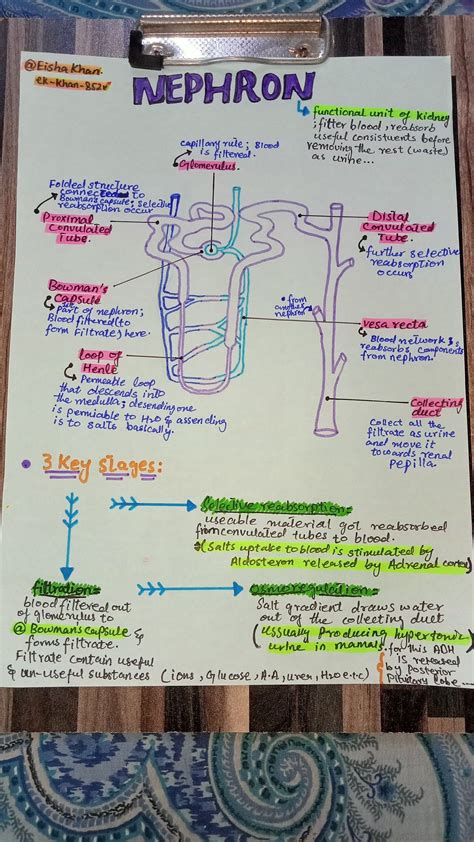 @Eisha Khan.
ek-khan-852
NEPHRON
functional unit of kidney
; filter blood, reabsorb
useful consistuents before
removing the rest (waste)
as urine...
capillary rule; Blood
is filtered.
Glomerulus.
Folded structure
connected to
Bowman's capsule; selective
reabsorption occur
Proximal
Convulated
Tube.
Distal
Convulated
Tube.
further selective
reabsorption
occurs
Bowman's
Capsule
part of nephron;
Blood filtered (to
form Filtrate) here.
• from
another
nephron
vesa recta
Blood network &
reabsorbs components
from nephron.
loop of
Henle
Permeable loop
that descends into
the medulla; desending one
is permiable to H2O & assending
is to salts basically.
Collecting
duct
Collect all the
filtrate as urine
and move it
towards renal
Pepilla.
• 3 Key Stages:
Selective reabsorption:
useable material got reabsorbed
from convulated tubes to blood.
(salts uptake to blood is stimulated by
Aldosteron released by Adrenal cortex)
filtration:
blood filtered out
of glomerulus to
@ Bowman's capsule &
forms filtrate.
Filtrate contain useful
& un-useful substances (ions, Glucose, A.A, urea, H2O e.t.c)
osmoregulation:
Salt gradient draws water
out of the collecting duct
(ussually Producing hypertonic
urine in mamals.
for this ADH
is released
by Posterior
Pitutary lobe....